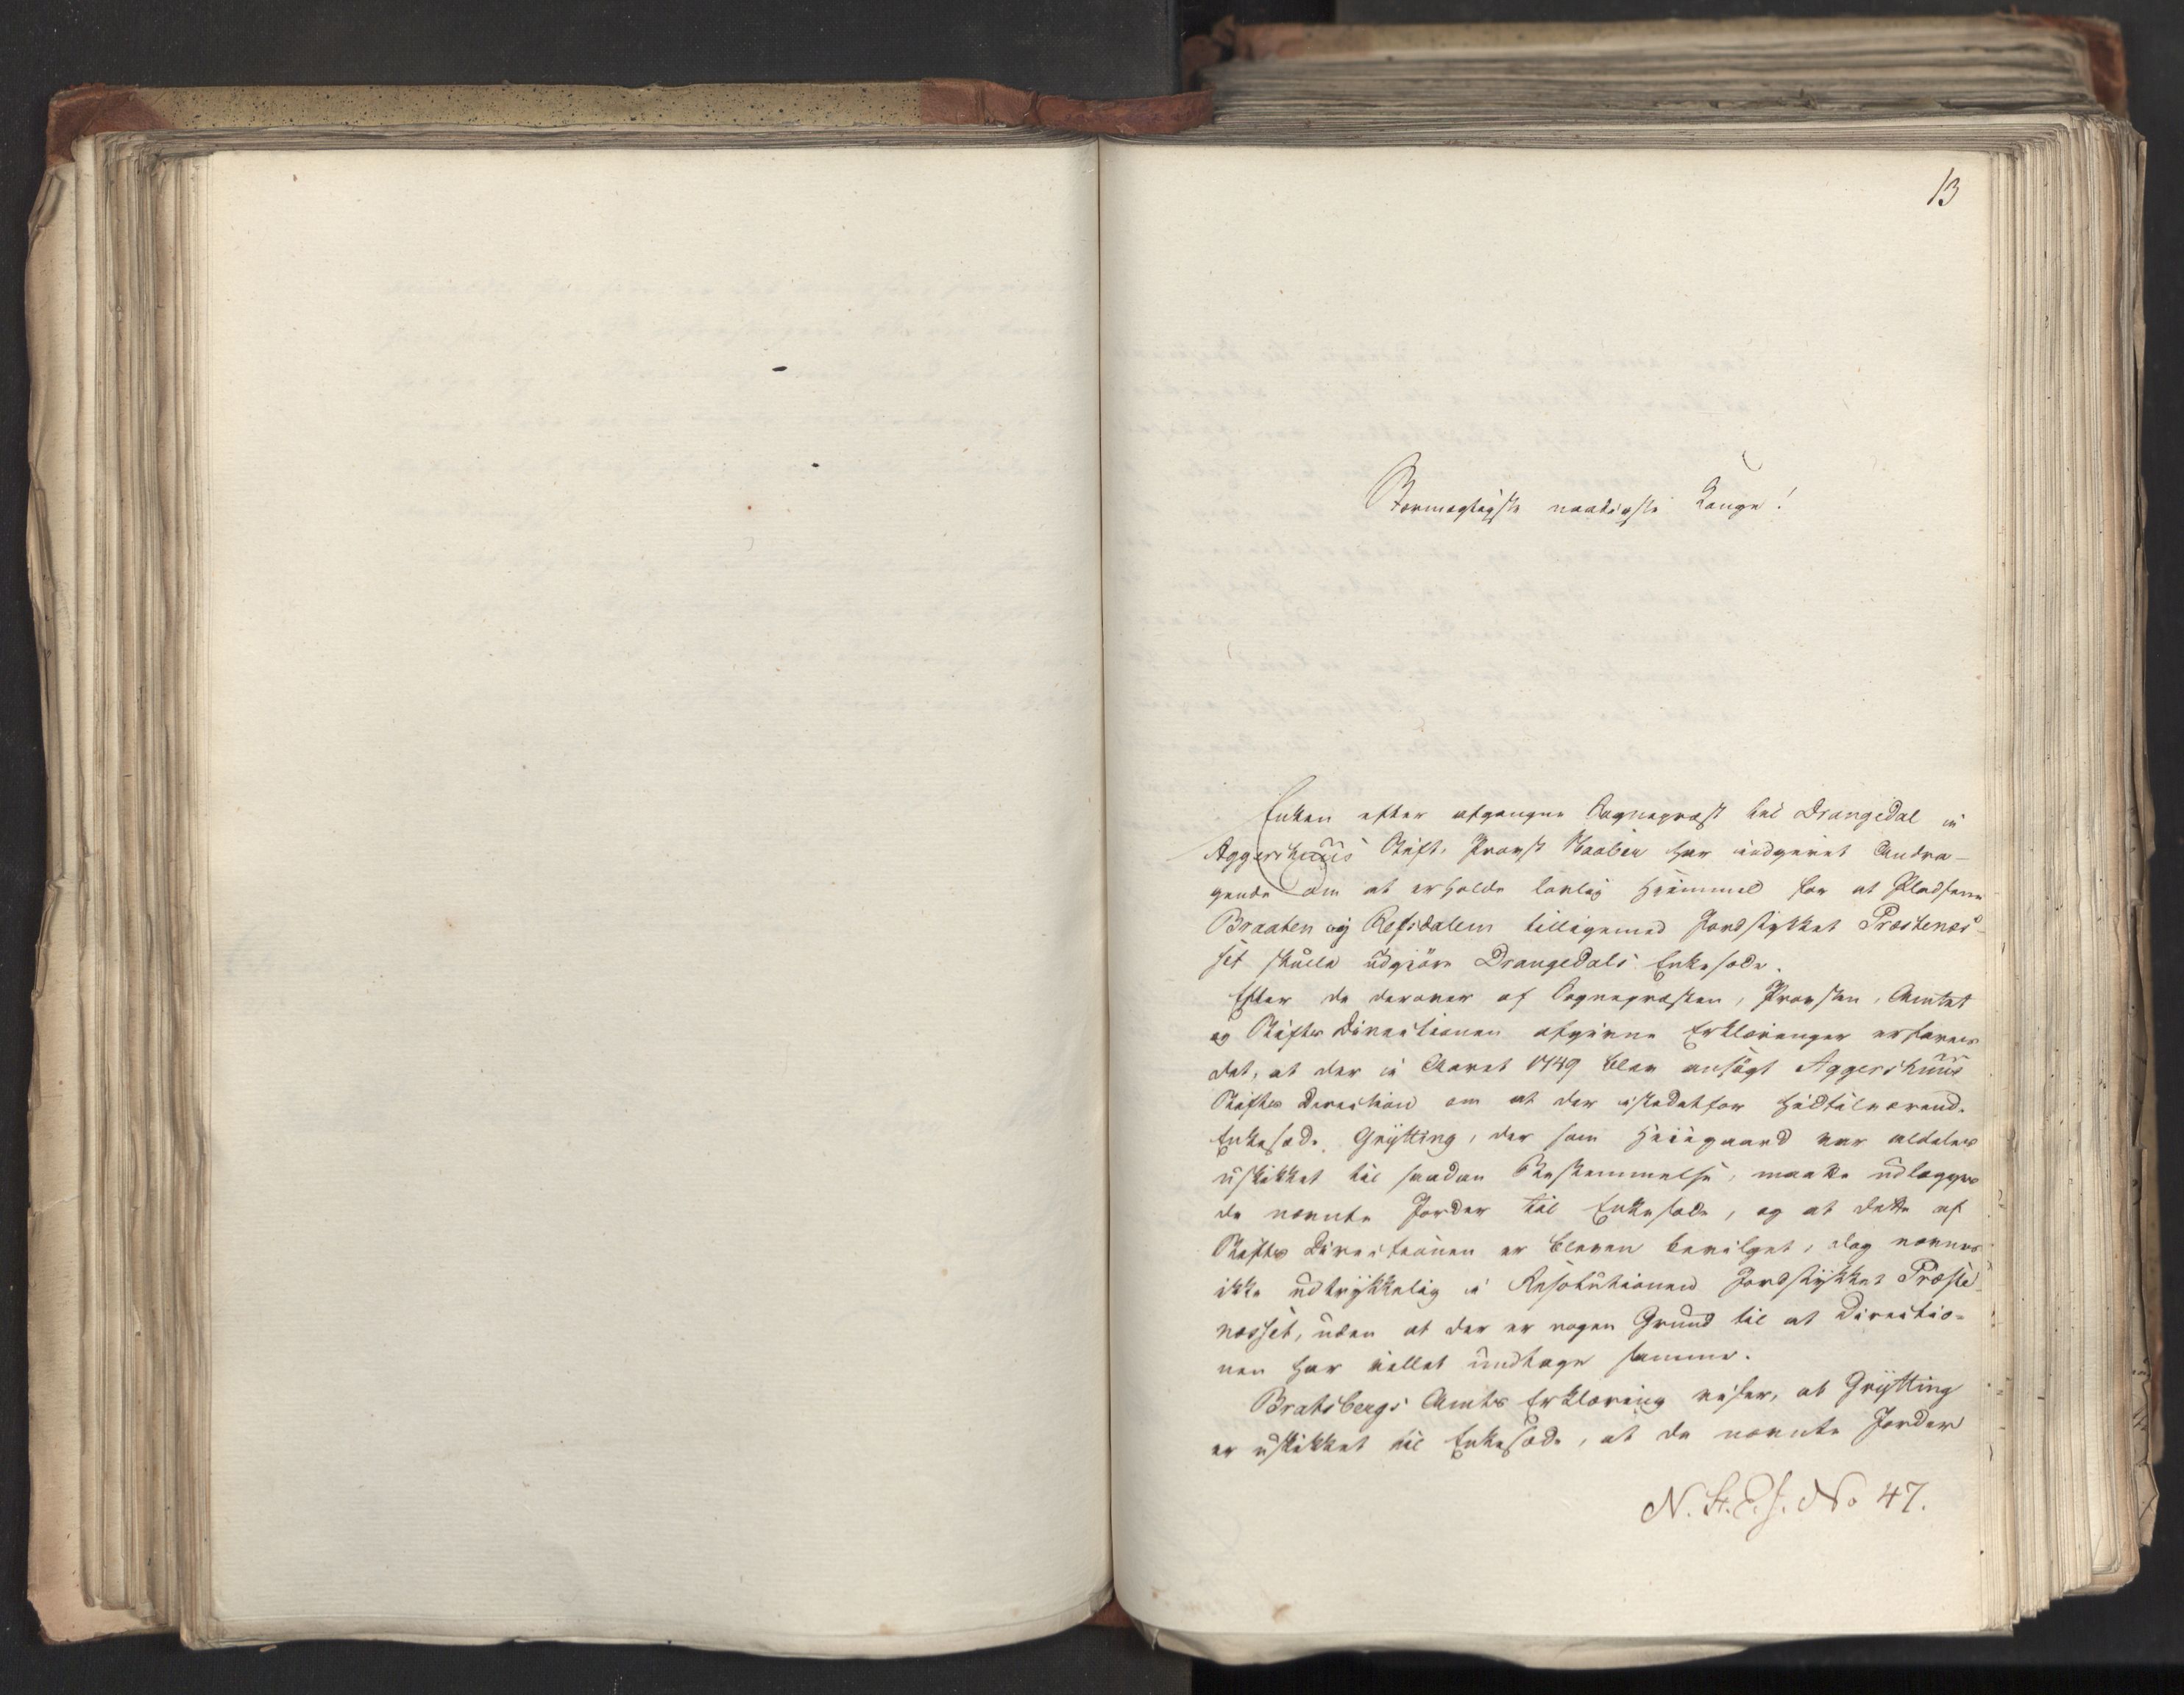 13
Stormægtigste naadigste Konge!
Enken efter afgangne Sognepræst til Drangedal i
Aggershuus Stift, Provst Kaabøe har indgivet Andra-
gende om at erholde lovlig Hjemmel for at Pladsene
Braaten og Refsdalen tilligemed Jordstykket Præstenæs-
set skulle udgjøre Drangedals Enkesæde.
Efter de derover af Sognepræsten, Provsten, Amtet
og Stifts Directionen afgivne Erklæringer erfares
det, at der i Aaret 1749 blev ansøgt Aggershuus
Stifts Direction om at der istedetfor hidtilværende
Enkesæde Grytting, der som Heiegaard var aldeles
uskikket til saadan Bestemmelse, maatte udlægges
de nævnte Jorder til Enkesæde, og at dette af
Stifts Directionen er bleven bevilget, dog nævnes
ikke udtrykkelig i Resolutionen Jordstykket Præste-
næsset, uden at der er nogen Grund til at Directio-
nen har villet undtage samme.
Bratsbergs Amts Erklæring viser, at Grytting
er uskikket til Enkesæde, at de nævnte Jorder
N. St. E. f. No 47.